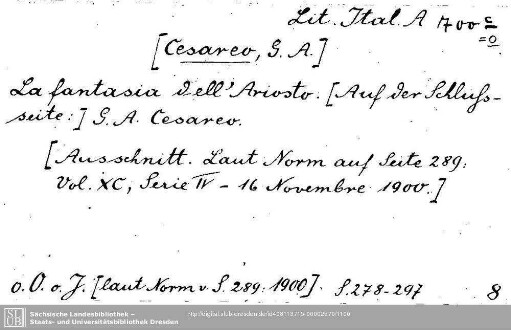 Lit. Ital. A 700 c
=o
[Cesareo, G. A.]
La fantasia dell'Ariosto. [Auf der Schluß-
seite:] G. A. Cesareo.
[Ausschnitt. Laut Norm auf Seite 289:
Vol. XC, Serie IV – 16 Novembre 1900.]
o. O. o. J. [laut Norm v. S. 289: 1900]. S. 278-297
8
SLUB
Sächsische Landesbibliothek –
Staats- und Universitätsbibliothek Dresden